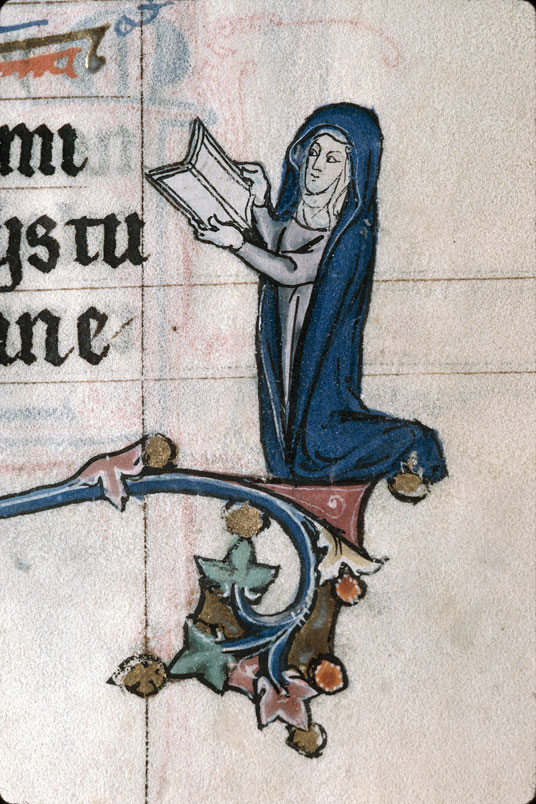 mi
ystu
ane